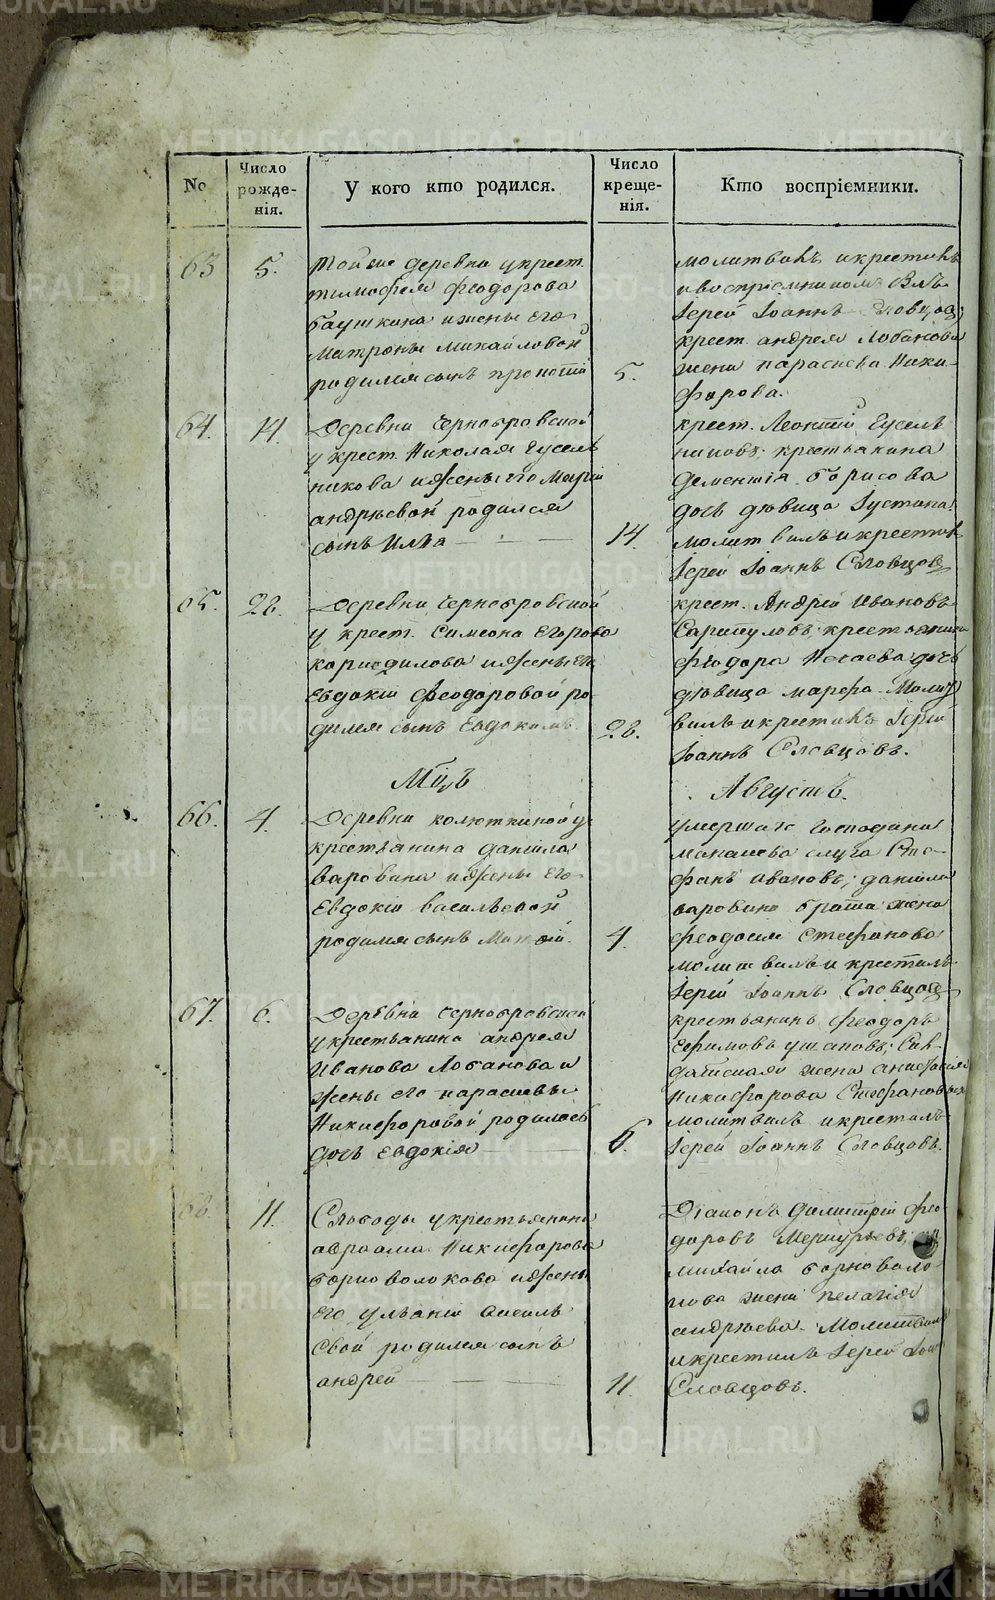 No
Число рожде-нія.
У кого кто родился.
Число креще-нія.
Кто воспріемники.
63
5.
Той же деревни у крест.
тимофея феодорова
баушкина и жены его
Матроны Михайловой
родился сынъ
5.
молитвилъ и крестилъ
и воспріемникомъ былъ
Іерей Іоаннъ Словцовъ;
крест. андрея Лобанова
жена параскева Ники-
форова.
64.
14.
Деревни Чернобровской
у крест. Николая Гусель
никова и жены его Маріи
андрѣевой родился
сынъ Илья
14.
крест. Леонтій Гусель
никовъ; крестьянина
Дементія борисова
дочь дѣвица Іустина.
молитвилъ и крестилъ
Іерей Іоаннъ Словцовъ
65.
28.
Деревни Чернобровской
у крест. Симеона Егорова
и жены его
Евдокіи Феодоровой ро
дился сынъ Евдокимъ.
28.
крест. Андрей Ивановъ
Сарапуловъ; крестьянина
феодора дочь
дѣвица марфа. Молит
вилъ и крестилъ Іерей
Іоаннъ Словцовъ.
Мцъ
Августъ.
66.
4.
Деревни колюткиной у
крестьянина данила
варовина и жены его
Евдокіи васильевой
родился сынъ
4.
умершаго Господина
слуга Сте-
фанъ ивановъ; данила
варовина брата жена
феодосія Стефанова
молитвилъ и крестилъ
Іерей Іоаннъ Словцовъ
67.
6.
Деревни Чернобровской
у крестьянина андрея
Иванова Лобанова и
жены его параскевы
Никифоровой родилась
дочь Евдокія
6.
крестьянинъ феодоръ
Ефимовъ ушаковъ; Сол-
датская жена анисія
Никифорова Стефановыхъ
молитвилъ и крестилъ
Іерей Іоаннъ Словцовъ.
68.
11.
Слободы у крестьянина
авраама Никифорова
борноволокова и жены
его ульяніи
родился сынъ
андрей
11.
Діаконъ Димитрій Фео
доровъ Меркурьевъ;
михаила борноволо
кова жена пелагія
андрѣева. Молитвилъ
и крестилъ Іерей Іоан
Словцовъ.
METRIKI.GASO-URAL.RU